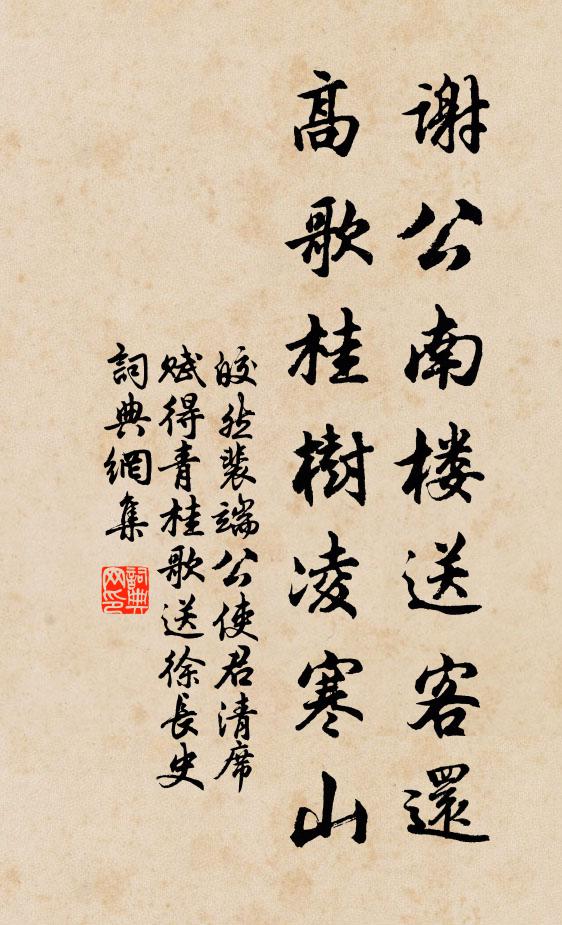 謝公南楼送客還
高歌桂樹凌寒山
皎然裴端公使君清席
賦得青桂歌送徐長史
詞典網集
詞典
网印